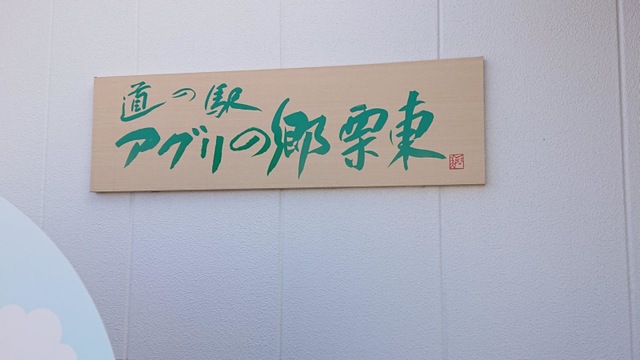 道の駅
アグリの郷栗東